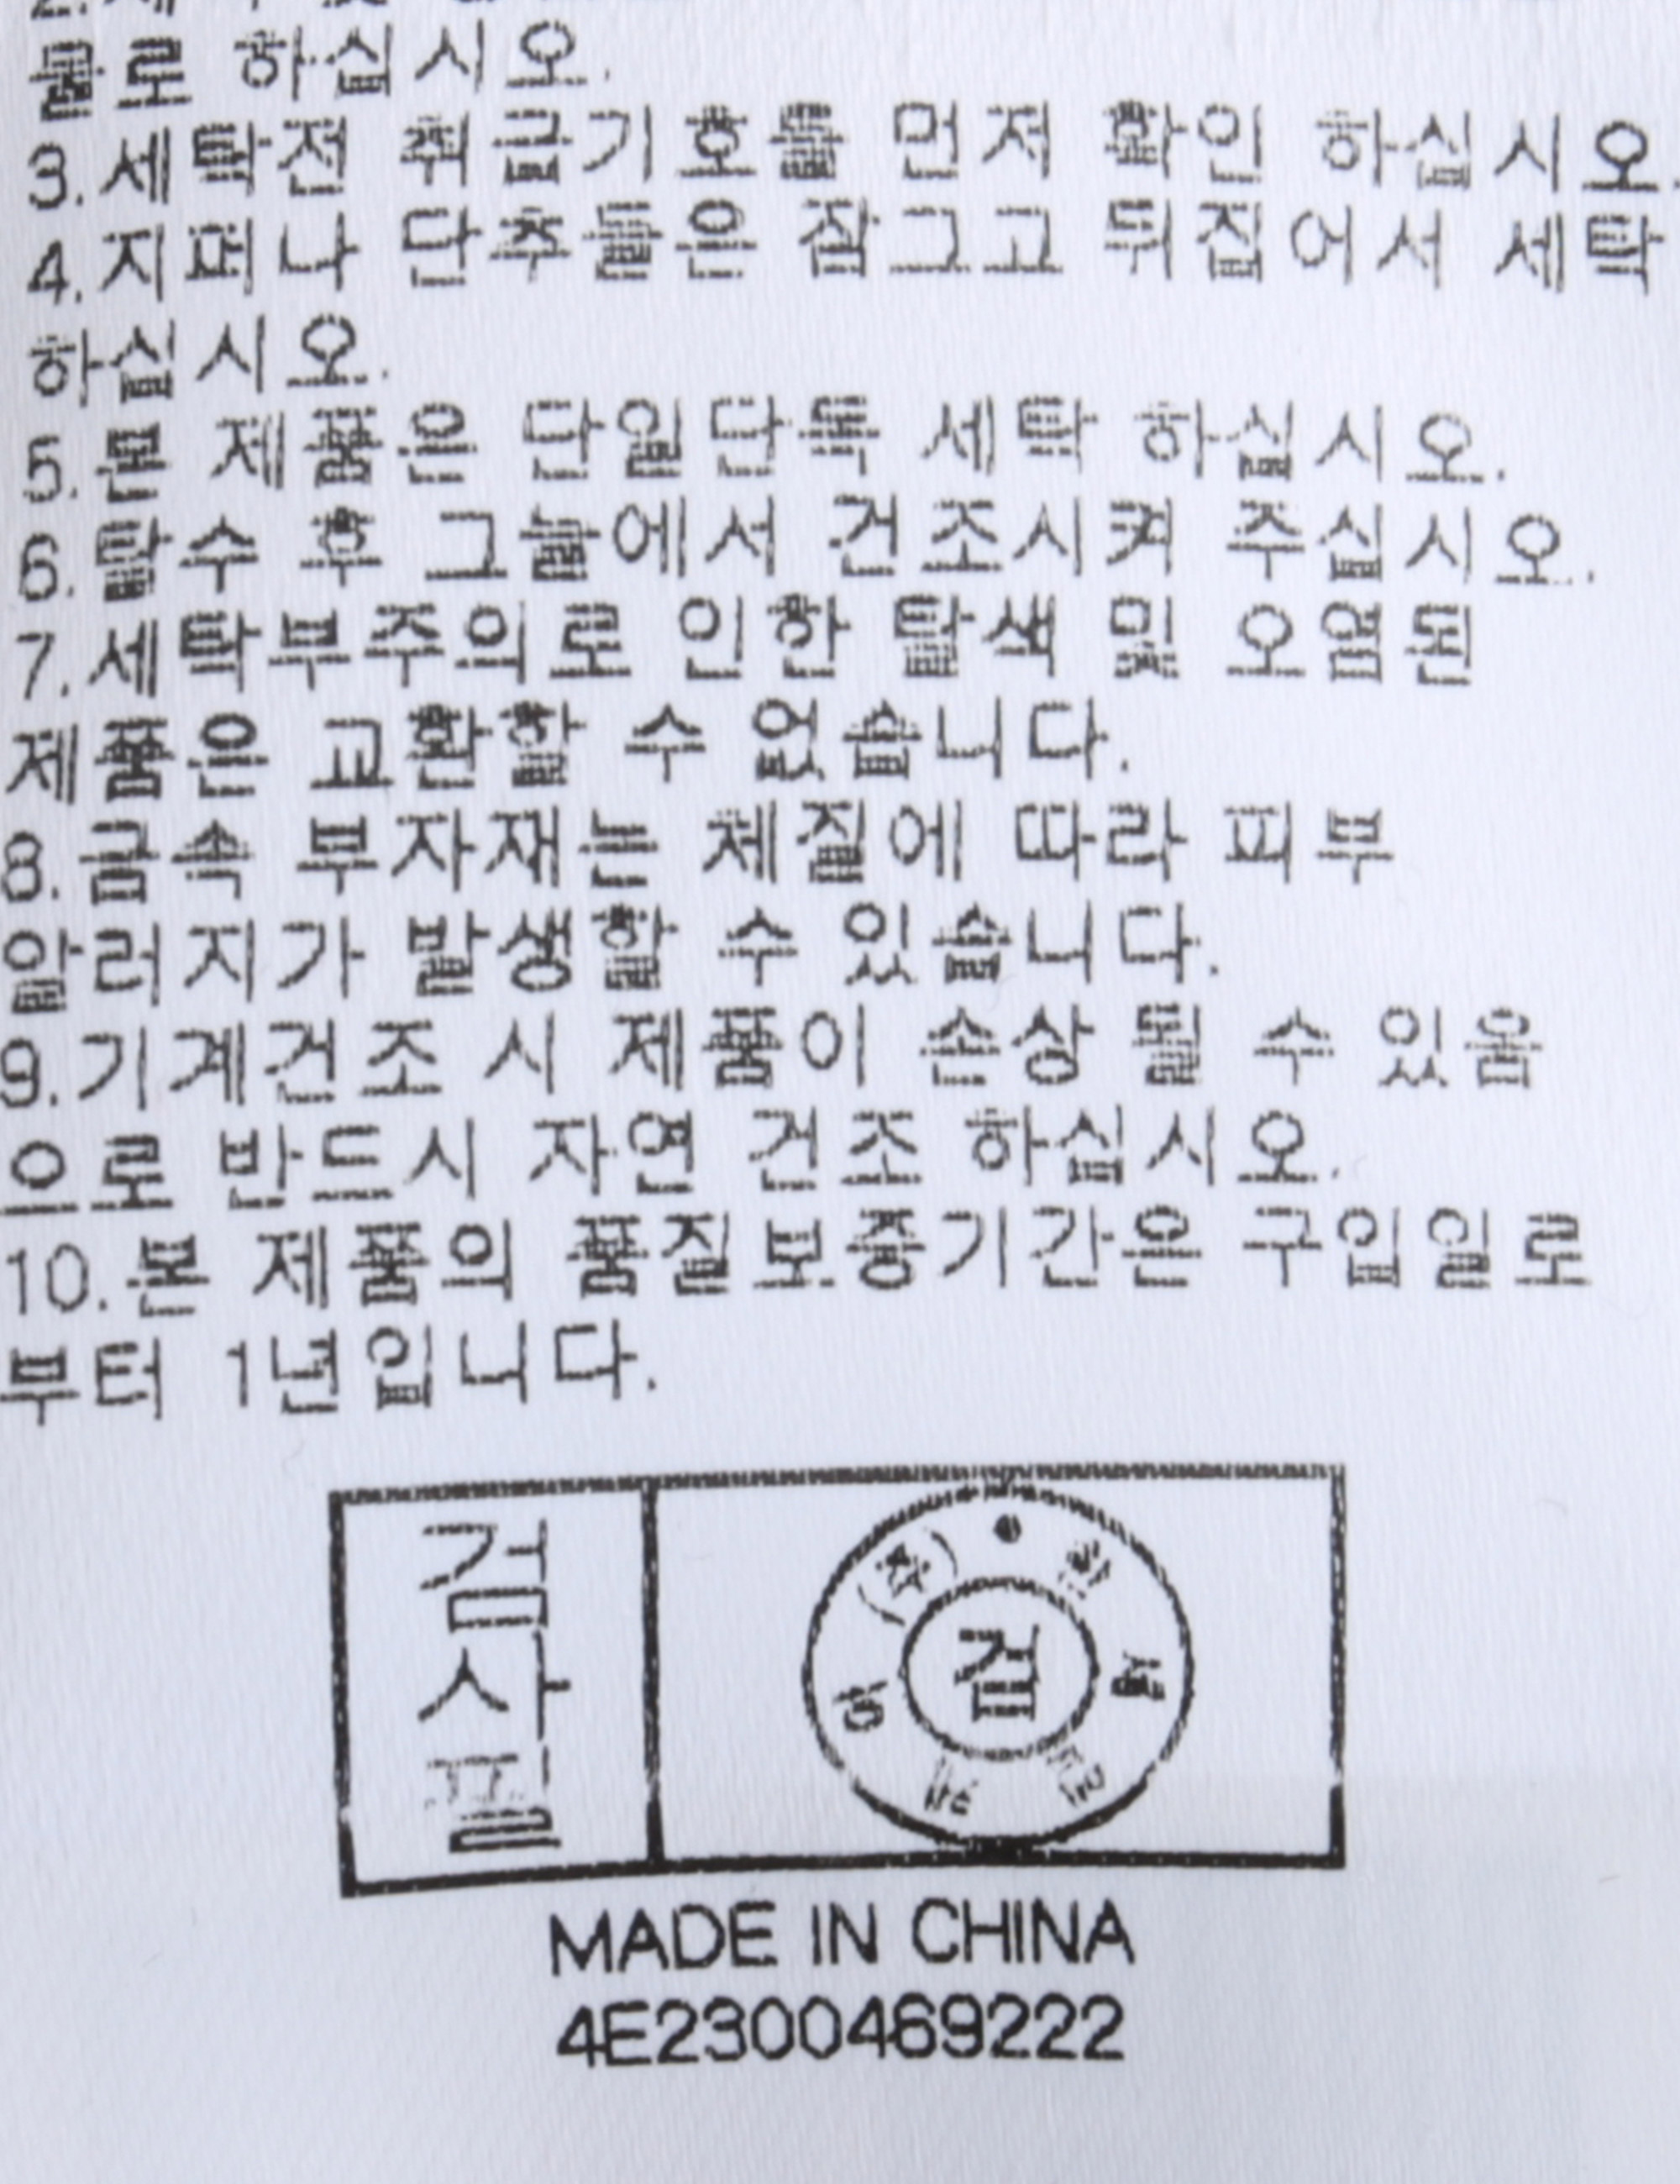 물로 하십시오.
3.세탁전 취급기호를 먼저 확인 하십시오.
4.지퍼나 단추들은 잠그고 뒤집어서 세탁
하십시오.
5.본 제품은 단일단독 세탁 하십시오.
6.탈수 후 그늘에서 건조시켜 주십시오.
7.세탁부주의로 인한 탈색 및 오염된
제품은 교환할 수 없습니다.
8.금속 부자재는 체질에 따라 피부
알러지가 발생할 수 있습니다.
9.기계건조 시 제품이 손상 될 수 있음
으로 반드시 자연 건조 하십시오.
10.본 제품의 품질보증기간은 구입일로
부터 1년입니다.
검
사
필
(주)
검
MADE IN CHINA
4E2300469222